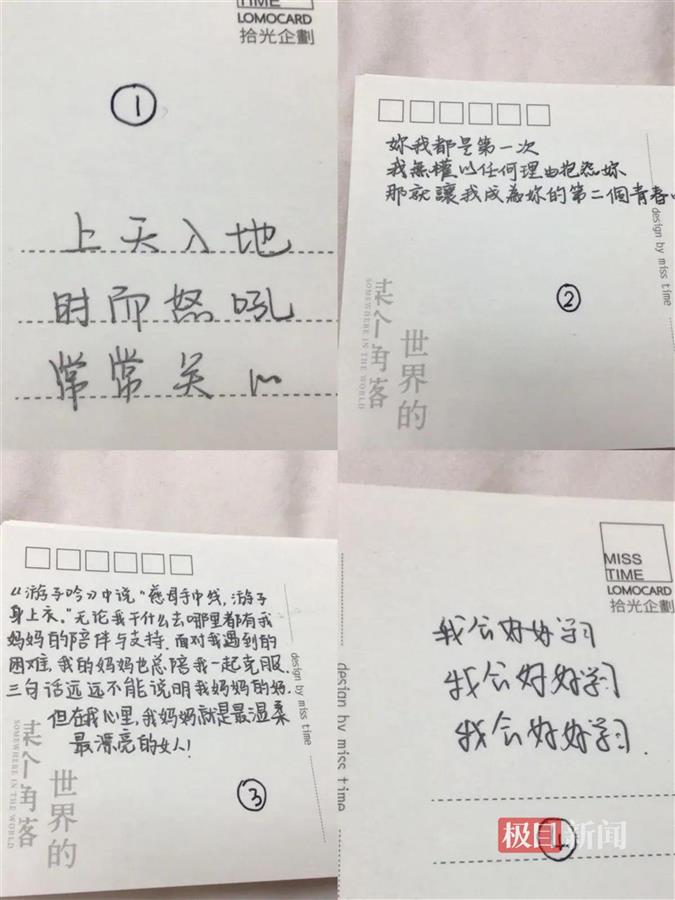 TIME
LOMOCARD
拾光企劃
①
上天入地
时而怒吼
常常关心
妳我都是第一次
我無權以任何理由抱怨妳
那就讓我成為妳的第二個青春吧
design by miss time
②
某个角落
SOMEWHERE IN THE WORLD
世界的
《游子吟》中说“慈母手中线，游子
身上衣。”无论我干什么去哪里都有我
妈妈的陪伴与支持。面对我遇到的
困难，我的妈妈也总陪我一起克服。
三句话远远不能说明我妈妈的好。
但在我心里，我妈妈就是最温柔
最漂亮的女人！
design by miss time
③
某个角落
SOMEWHERE IN THE WORLD
世界的
MISS
TIME
LOMOCARD
拾光企劃
我会好好学习
我会好好学习
我会好好学习.
design by miss time
④
极目新闻